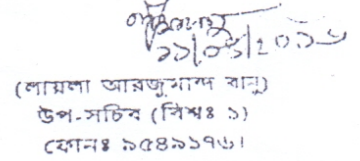 ১১/০৫/২০১৬
(লায়লা আরজুমান্দ বানু)
উপ-সচিব (বিশ্বঃ ১)
ফোনঃ ৯৫৪৯১৭৬।